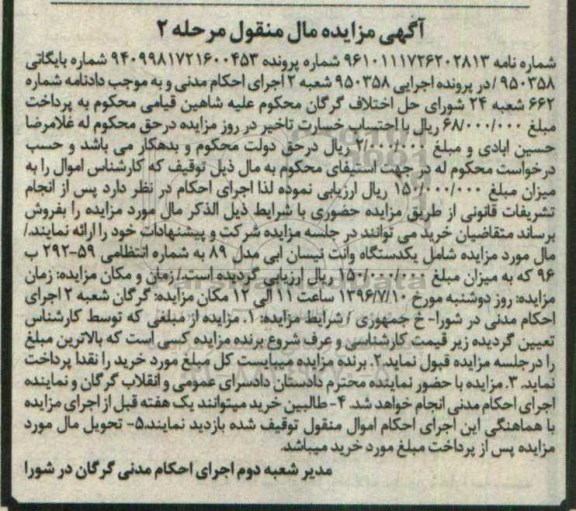 آگهی مزایده مال منقول مرحله ۲
شماره نامه ۹۶۱۰۱۱۱۷۲۶۲۰۲۸۱۳ شماره پرونده ۹۴۰۹۹۸۱۷۲۱۶۰۰۴۵۳ شماره بایگانی
۹۵۰۳۵۸ / در پرونده اجرایی ۹۵۰۳۵۸ شعبه ۲ اجرای احکام مدنی و به موجب دادنامه شماره
۶۶۲ شعبه ۲۴ شورای حل اختلاف گرگان محکوم علیه شاهین قیامی محکوم به پرداخت
مبلغ ۶۸/۰۰۰/۰۰۰ ریال با احتساب خسارت تاخیر در روز مزایده درحق محکوم له غلامرضا
حسین ابادی و مبلغ ۲/۰۰۰/۰۰۰ ریال درحق دولت محکوم و بدهکار می باشد و حسب
درخواست محکوم له در جهت استیفای محکوم به مال ذیل توقیف که کارشناس اموال را به
میزان مبلغ ۱۵۰/۰۰۰/۰۰۰ ریال ارزیابی نموده لذا اجرای احکام در نظر دارد پس از انجام
تشریفات قانونی از طریق مزایده حضوری با شرایط ذیل الذکر مال مورد مزایده را بفروش
برساند متقاضیان خرید می توانند در جلسه مزایده شرکت و پیشنهادات خود را ارائه نمایند./
مال مورد مزایده شامل یکدستگاه وانت نیسان ابی مدل ۸۹ به شماره انتظامی ۵۹-۲۹۲ ب
۹۶ که به میزان مبلغ ۱۵۰/۰۰۰/۰۰۰ ریال ارزیابی گردیده است./ زمان و مکان مزایده: زمان
مزایده: روز دوشنبه مورخ ۱۳۹۶/۷/۱۰ ساعت ۱۱ الی ۱۲ مکان مزایده: گرگان شعبه ۲ اجرای
احکام مدنی در شورا- خ جمهوری / شرایط مزایده: ۱. مزایده از مبلغی که توسط کارشناس
تعیین گردیده زیر قیمت کارشناسی و عرف شروع برنده مزایده کسی است که بالاترین مبلغ
را درجلسه مزایده قبول نماید. ۲. برنده مزایده میبایست کل مبلغ مورد خرید را نقدا پرداخت
نماید. ۳. مزایده با حضور نماینده محترم دادستان دادسرای عمومی و انقلاب گرگان و نماینده
اجرای احکام مدنی انجام خواهد شد. ۴- طالبین خرید میتوانند یک هفته قبل از اجرای مزایده
با هماهنگی این اجرای احکام اموال منقول توقیف شده بازدید نمایند. ۵- تحویل مال مورد
مزایده پس از پرداخت مبلغ مورد خرید میباشد.
مدیر شعبه دوم اجرای احکام مدنی گرگان در شورا